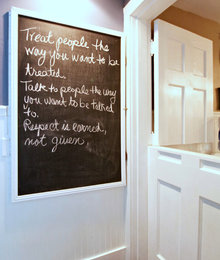 Treat people the
way you want to be
treated.
Talk to people the way
you want to be talked
to.
Respect is earned,
not given.